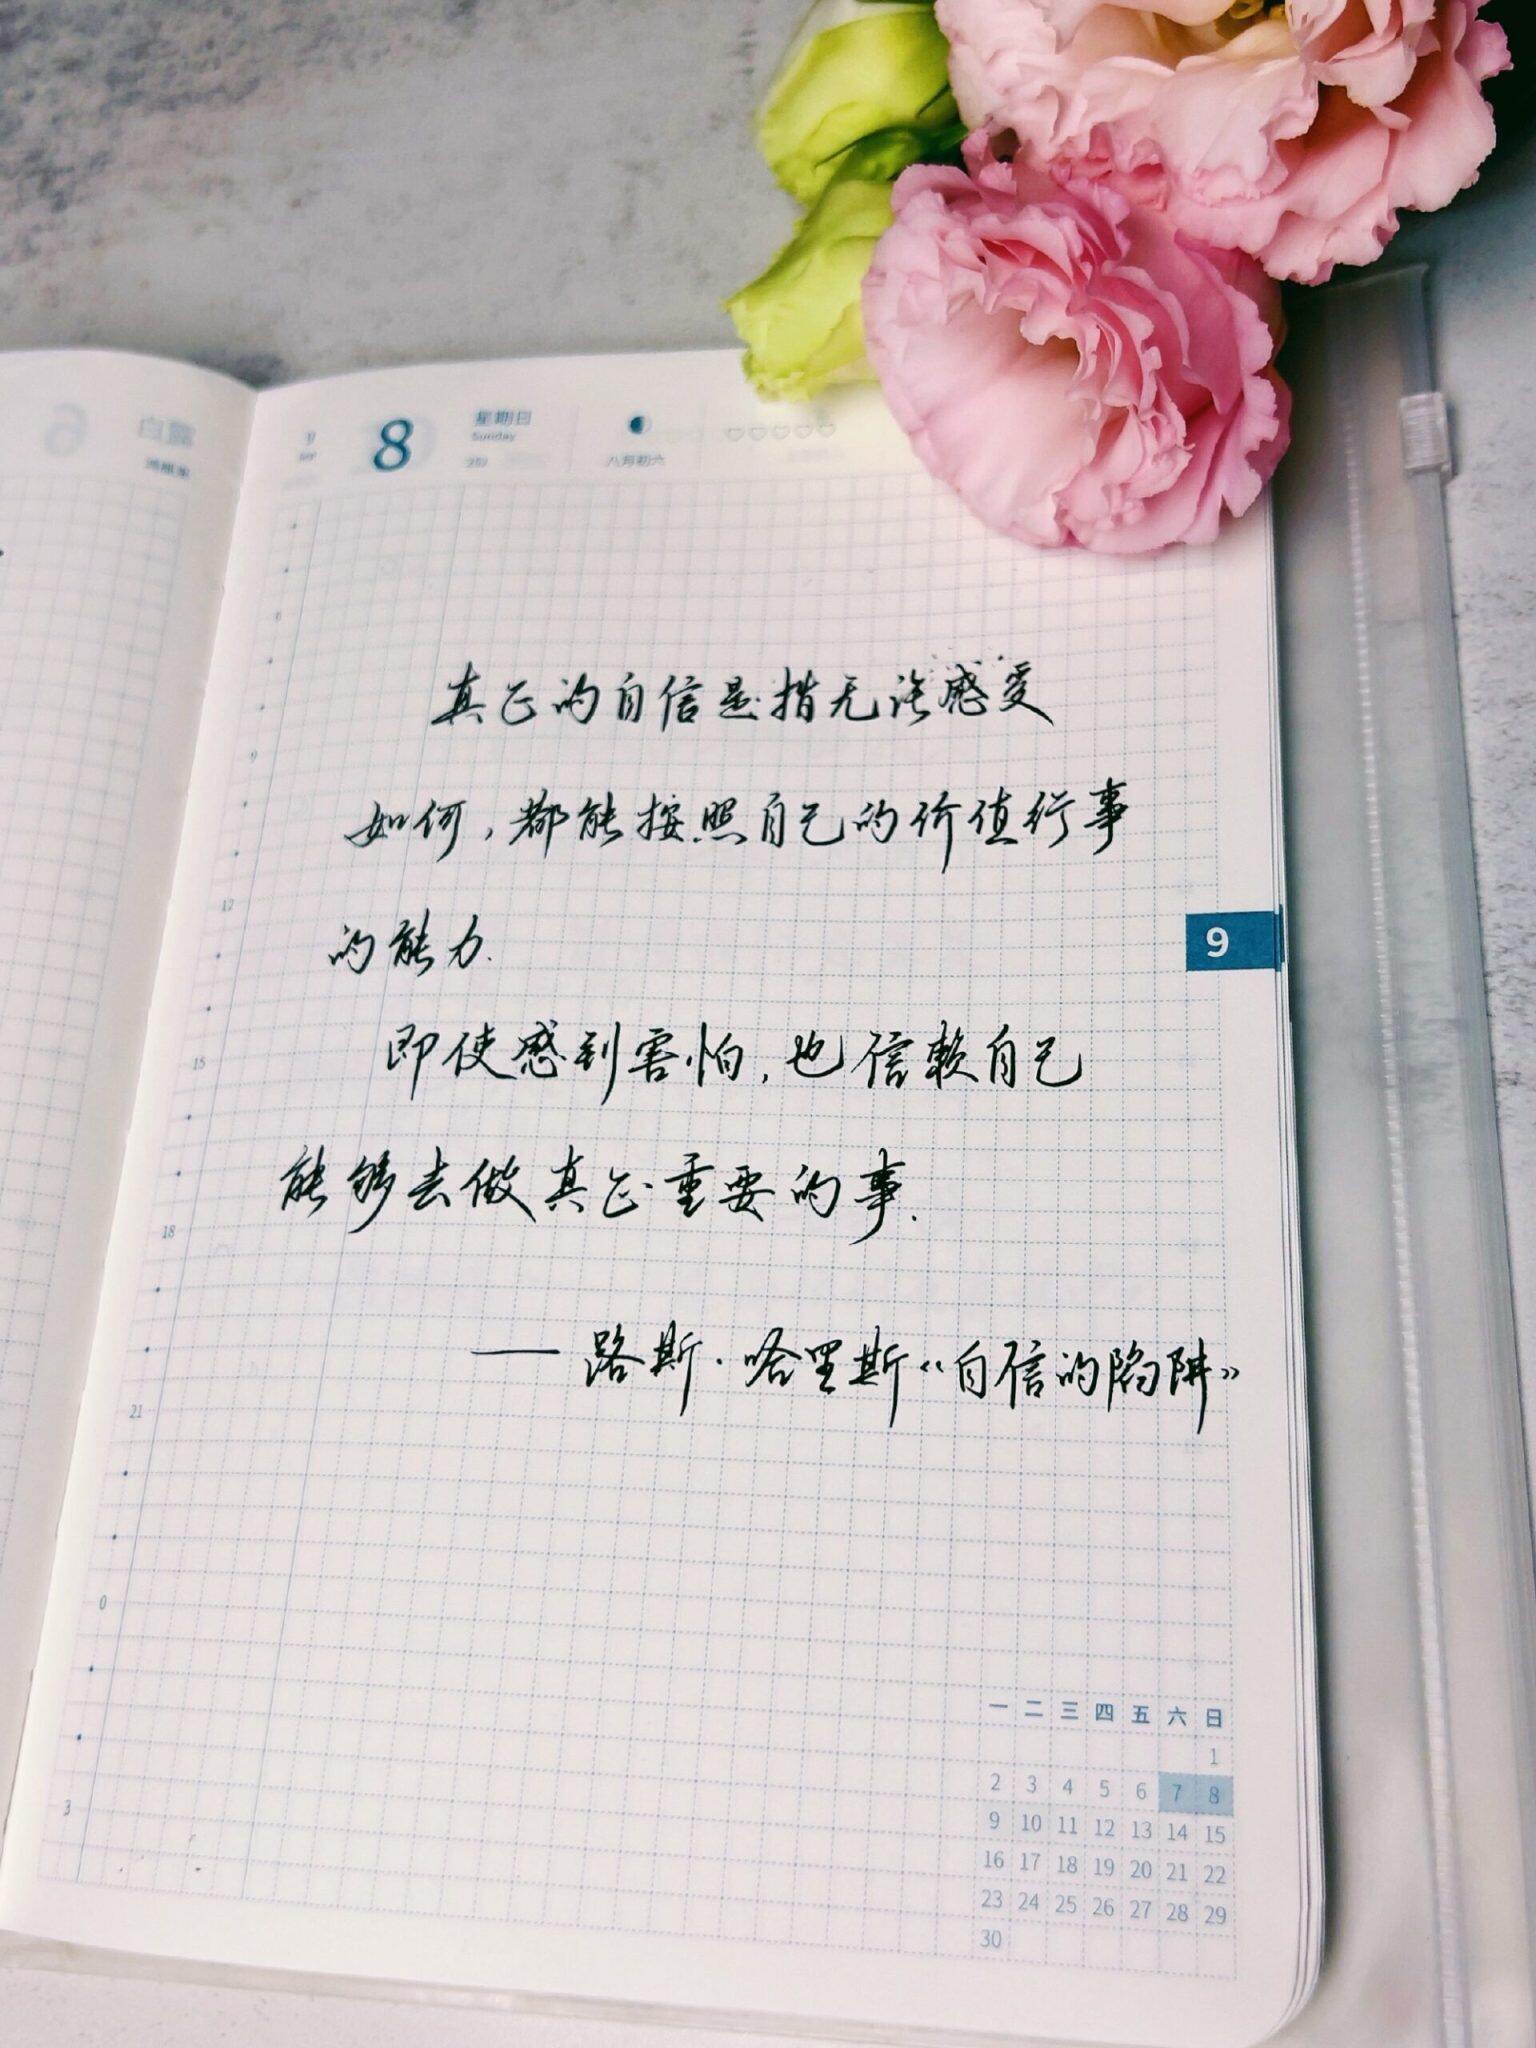 8
星期日
Sunday
八月初六
真正的自信是指无论感受
如何，都能按照自己的价值行事
的能力.
即使感到害怕，也信赖自己
能够去做真正重要的事.
——路斯·哈里斯《自信的陷阱》
9
9
12
15
18
21
0
3
一 二 三 四 五 六 日
1
2 3 4 5 6 7 8
9 10 11 12 13 14 15
16 17 18 19 20 21 22
23 24 25 26 27 28 29
30